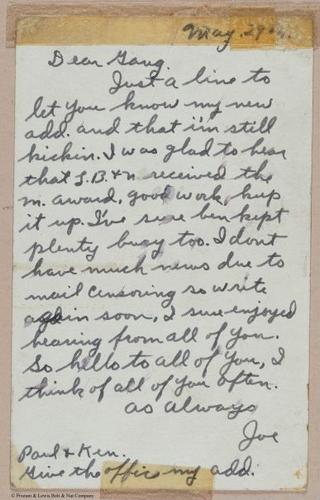 May. 29th.
Dear Gang.
Just a line to
let you know my new
add. and that i'm still
kickin. I was glad to hear
that S.B.&N received the
m. award, good work, keep
it up. I've sure ben kept
plenty busy too. I dont
have much news due to
mail censoring so write
again soon, I sure enjoyed
hearing from all of you.
So hello to all of you, I
think of all of you often.
as always
Joe
Paul & Ken.
Give the office my add.
© Preston & Lewis Bolt & Nut Company